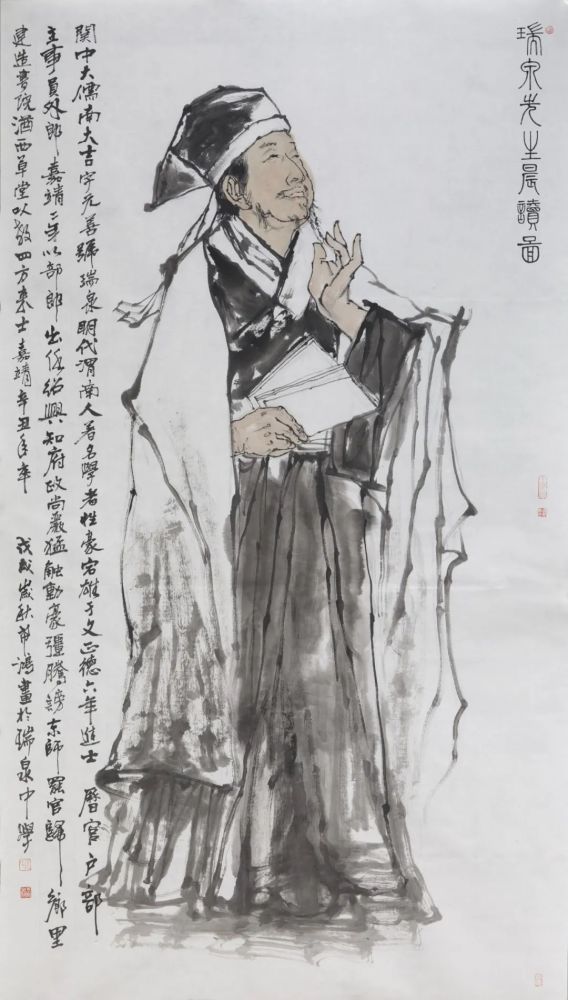 瑞泉先生晨讀圖
関中大儒南大吉字元善號瑞泉明代渭南人著名學者性豪宕雄于文正德六年進士 曆官户部
主事員外郎嘉靖二年以部郎出任紹興知府政尚嚴猛触動豪彊騰謗京師罷官歸鄉里
建造書院湭西草堂以教四方来士嘉靖辛丑年卒 戊戌歲秋
畫於瑞泉中學